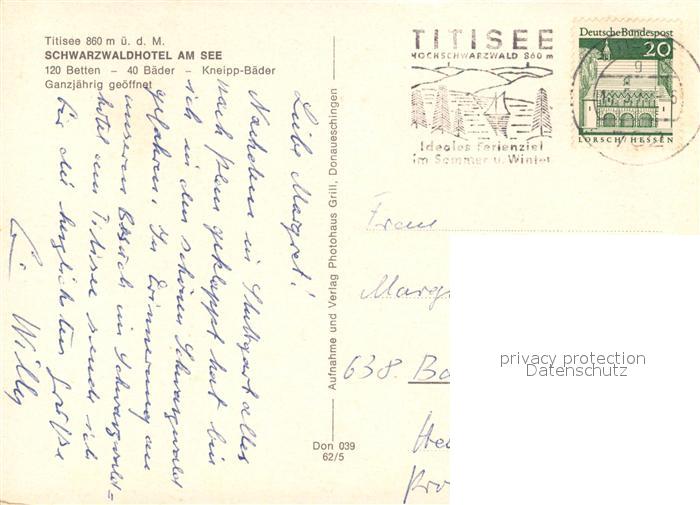 Titisee 860 m ü. d. M.
SCHWARZWALDHOTEL AM SEE
120 Betten – 40 Bäder – Kneipp-Bäder
Ganzjährig geöffnet
Liebe Margret!
Nachdem in Stuttgart alles
nach Plan geklappt hat bin
ich in den schönen Schwarzwald
gefahren. In Erinnerung an
unseren Besuch im Schwarzwald=
hotel am Titisee sende ich
Dir die herzlichsten Grüße
Willy
Aufnahme und Verlag Photohaus Grill, Donaueschingen
Don 039
62/5
TITISEE
HOCHSCHWARZWALD 860 m
Ideales Ferienziel
im Sommer u. Winter
Deutsche Bundespost
20
LORSCH/HESSEN
Frau
Marg
638. Ba
privacy protection
Datenschutz